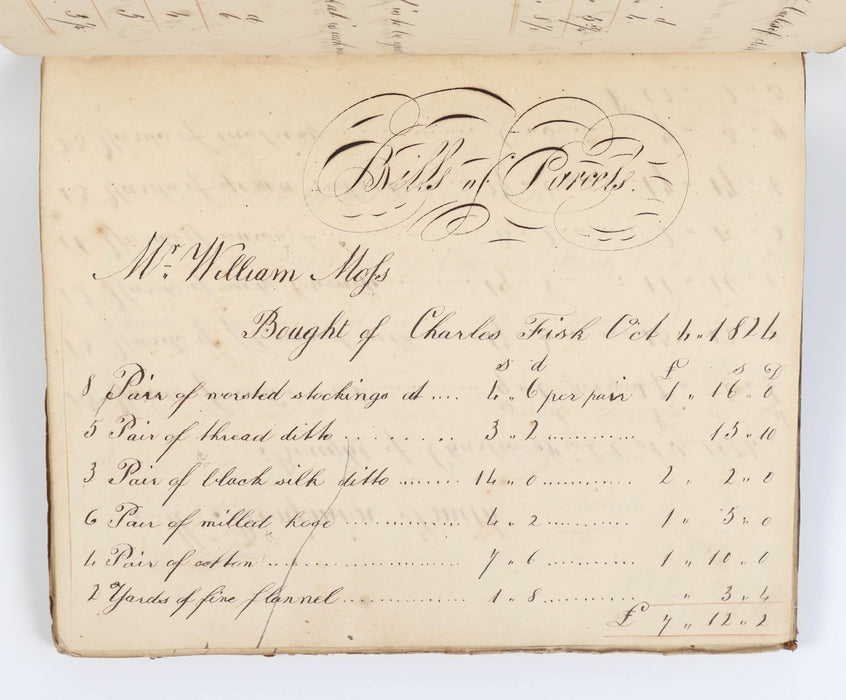 Bills of Parcels.
Mr. William Moss
Bought of Charles Fish Oct 4 „ 1824
s d £ s D
8 Pair of worsted stockings at .... 4 „ 6 per pair 1 „ 16 „ 0
5 Pair of thread ditto ........ 3 „ 2 ............ 15 „ 10
3 Pair of black silk ditto ........ 14 „ 0 ............ 2 „ 2 „ 0
6 Pair of milled hose ............... 4 „ 2 ............ 1 „ 5 „ 0
4 Pair of cotton ........................ 7 „ 6 ............ 1 „ 10 „ 0
2 Yards of fine flannel ............... 1 „ 8 ............ „ 3 „ 4
£ 7 „ 12 „ 2